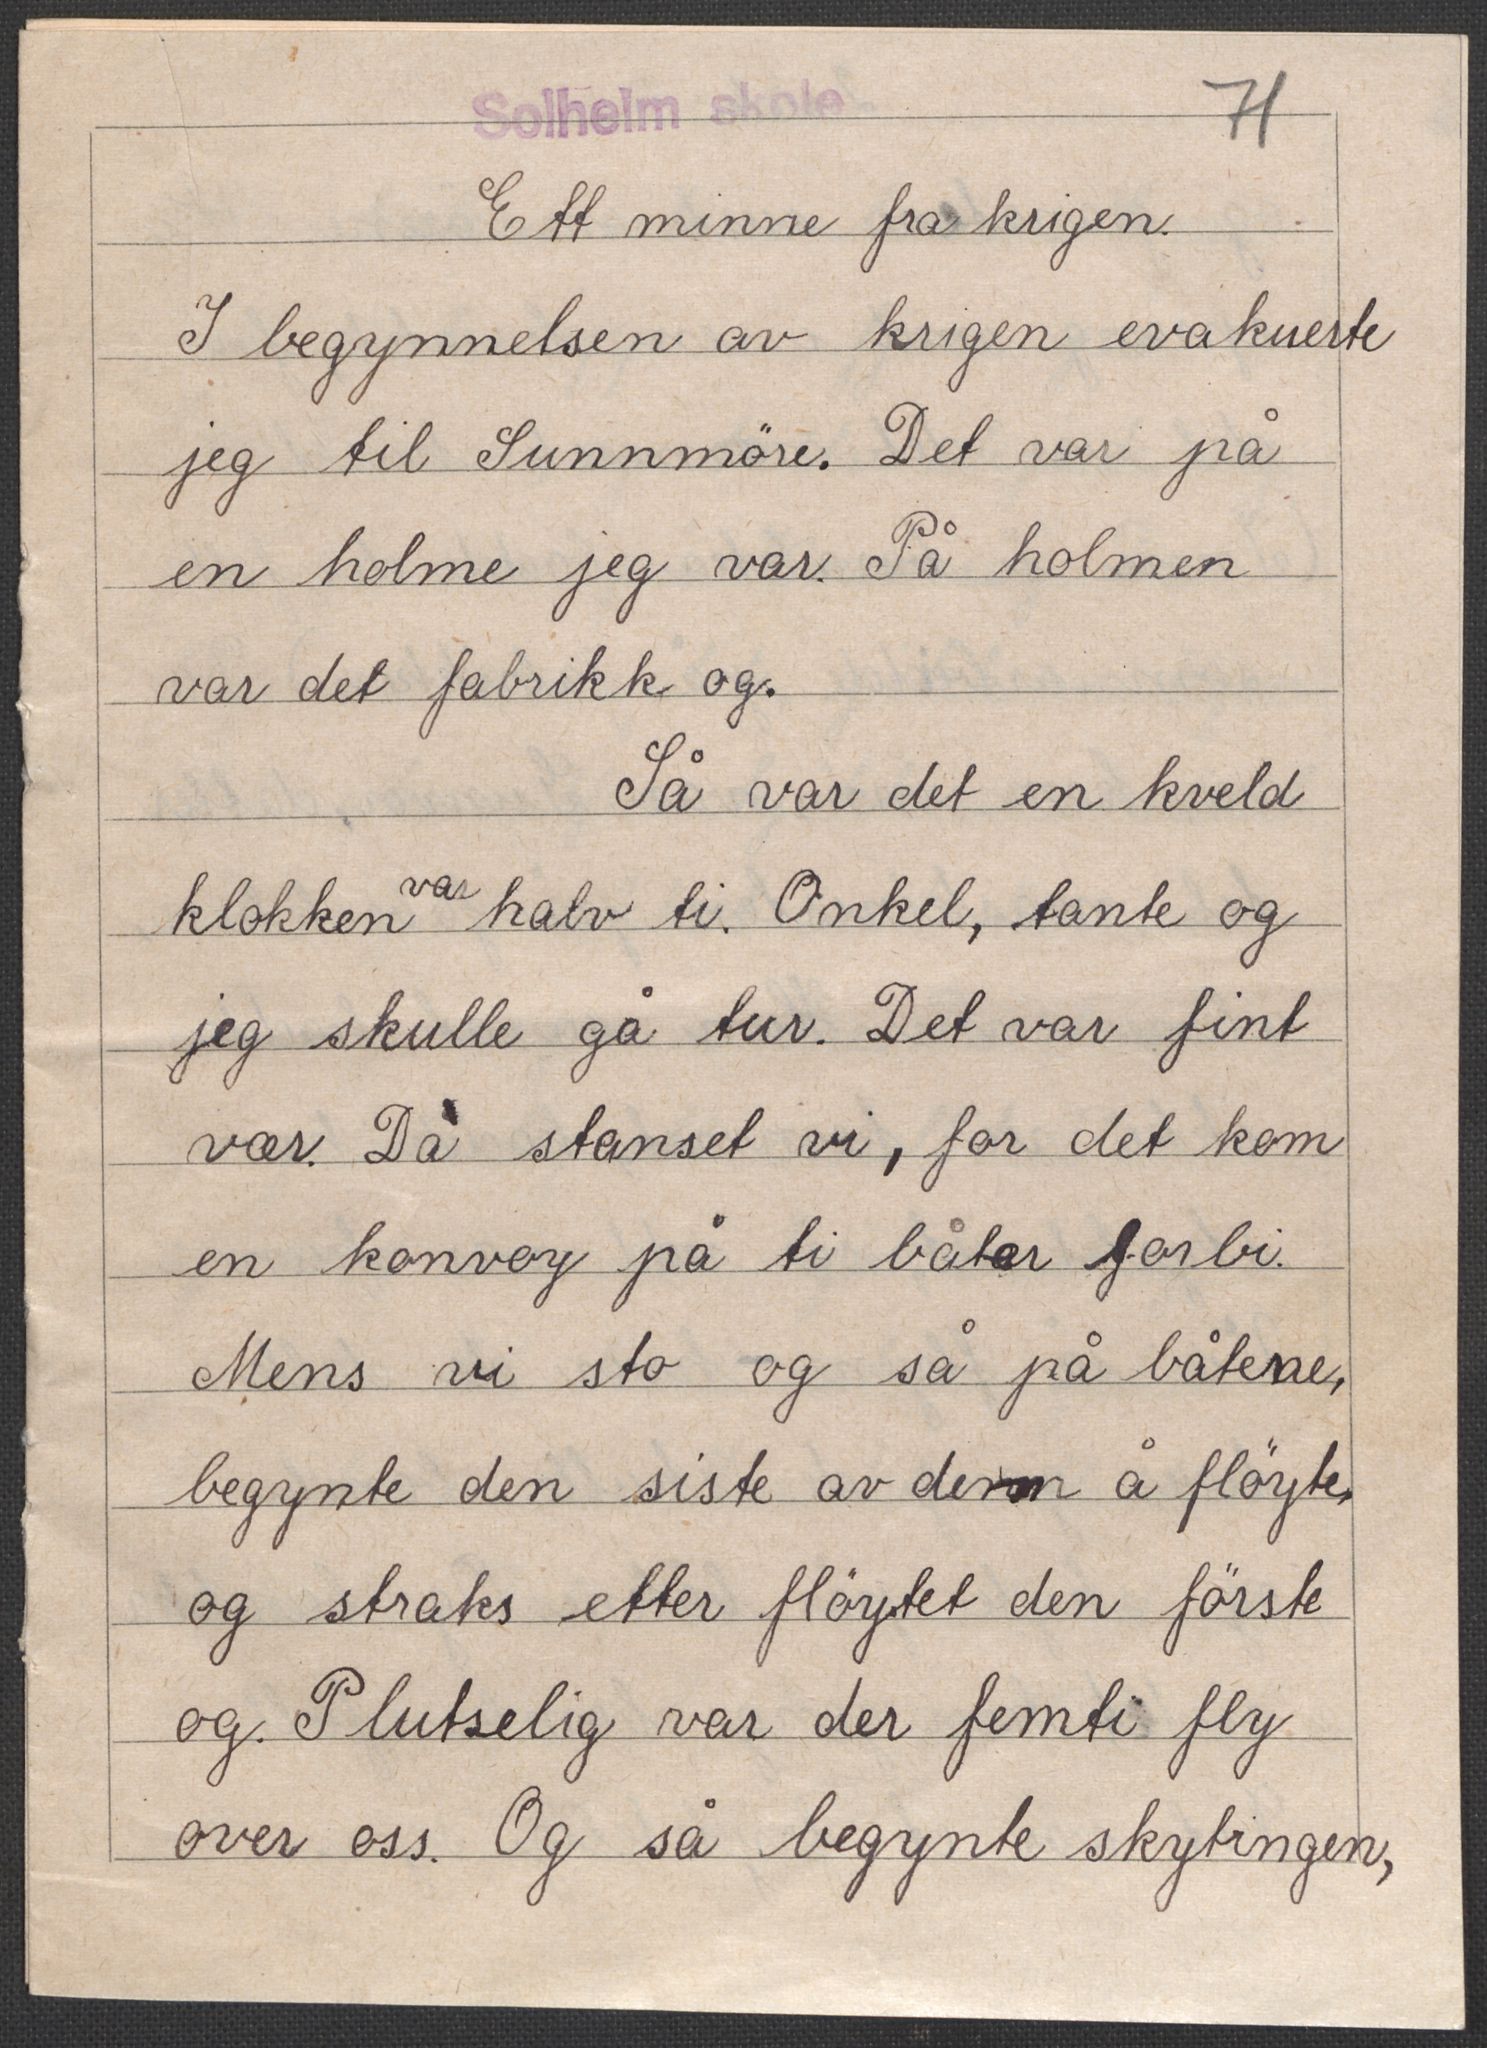 Solheim skole
71
Ett minne fra krigen.
I begynnelsen av krigen evakuerte
jeg til Sunnmöre. Det var på
en holme jeg var. På holmen
var det fabrikk og.
Så var det en kveld
klokken var halv ti. Onkel, tante og
jeg skulle gå tur. Det var fint
vær. Då stanset vi, for det kom
en konvoy på ti båter forbi.
Mens vi sto og så på båtene,
begynte den siste av dem å flöyte,
og straks etter flöytet den förste
og. Plutselig var der femti fly
over oss. Og så begynte skytingen,